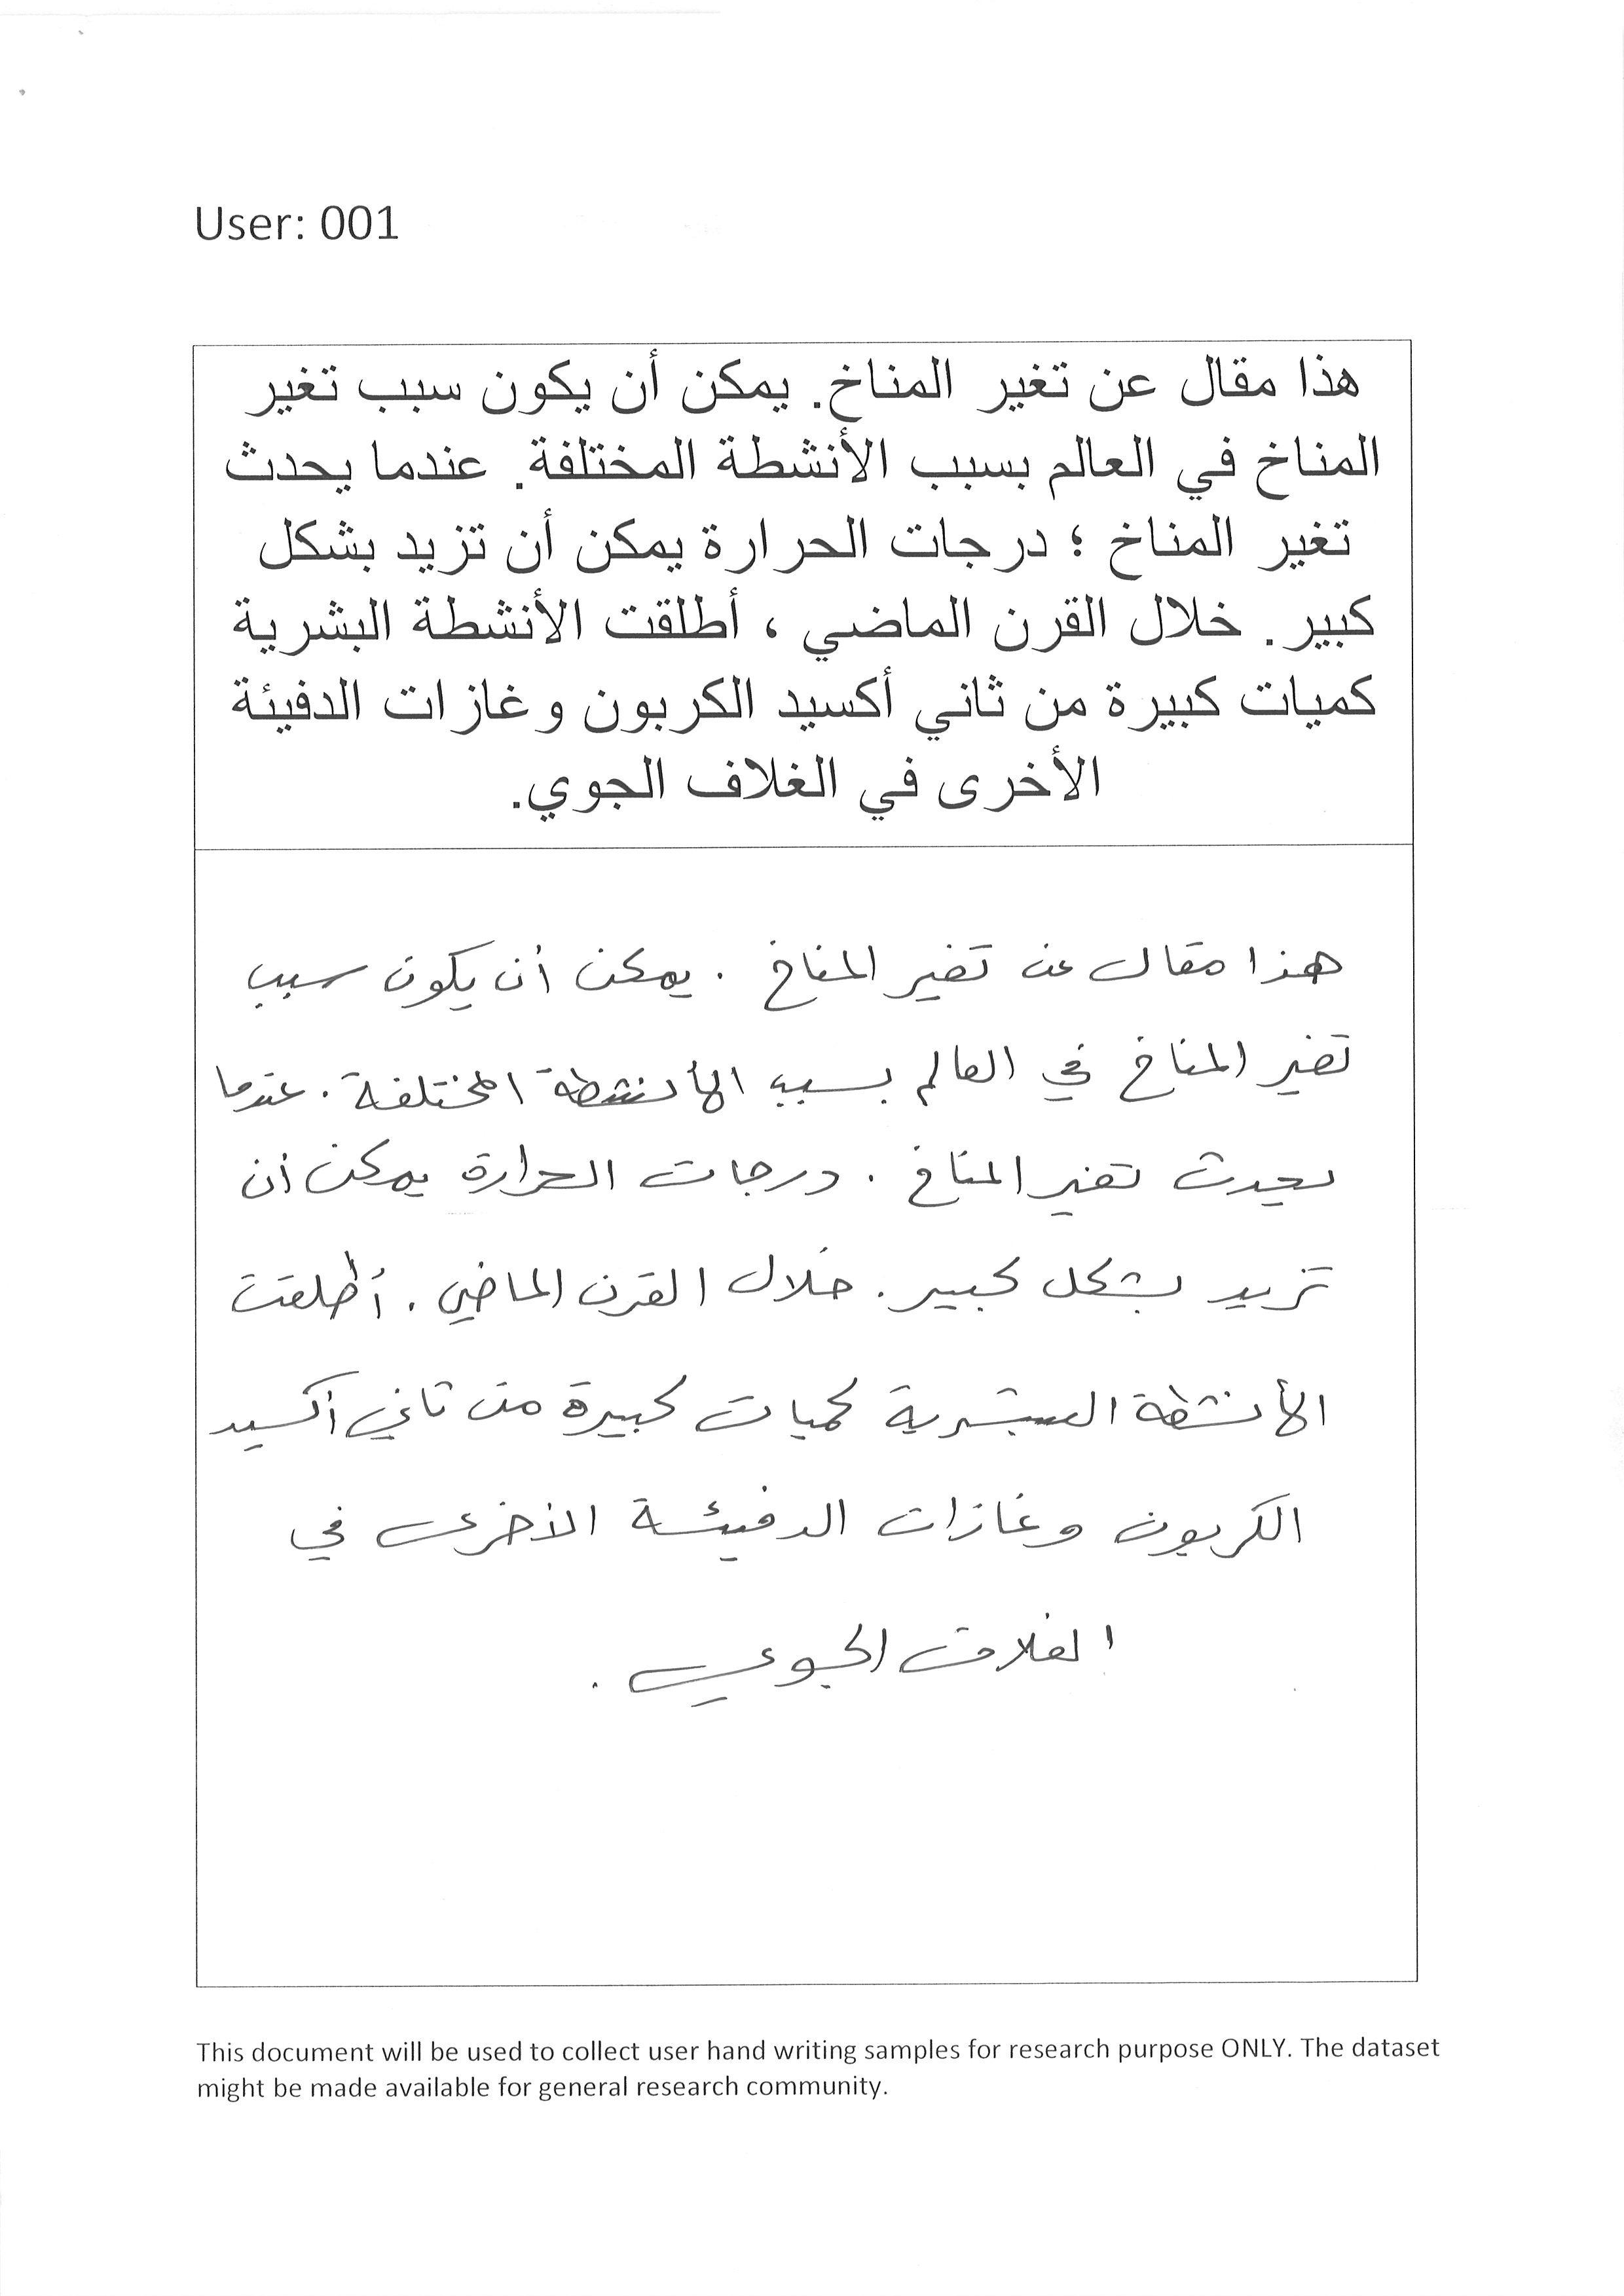 User: 001
هذا مقال عن تغير المناخ. يمكن أن يكون سبب تغير
المناخ في العالم بسبب الأنشطة المختلفة. عندما يحدث
تغير المناخ ؛ درجات الحرارة يمكن أن تزيد بشكل
كبير. خلال القرن الماضي ، أطلقت الأنشطة البشرية
كميات كبيرة من ثاني أكسيد الكربون وغازات الدفيئة
الأخرى في الغلاف الجوي.
هذا مقال عن تغير المناخ . يمكن أن يكون سبب
تغير المناخ في العالم بسبب الأنشطة المختلفة . عندما
يحدث تغير المناخ . درجات الحرارة يمكن أن
تزيد بشكل كبير . خلال القرن الماضي . أطلقت
الأنشطة البشرية كميات كبيرة من ثاني أكسيد
الكربون وغازات الدفيئة الأخرى في
الغلاف الجوي .
This document will be used to collect user hand writing samples for research purpose ONLY. The dataset
might be made available for general research community.